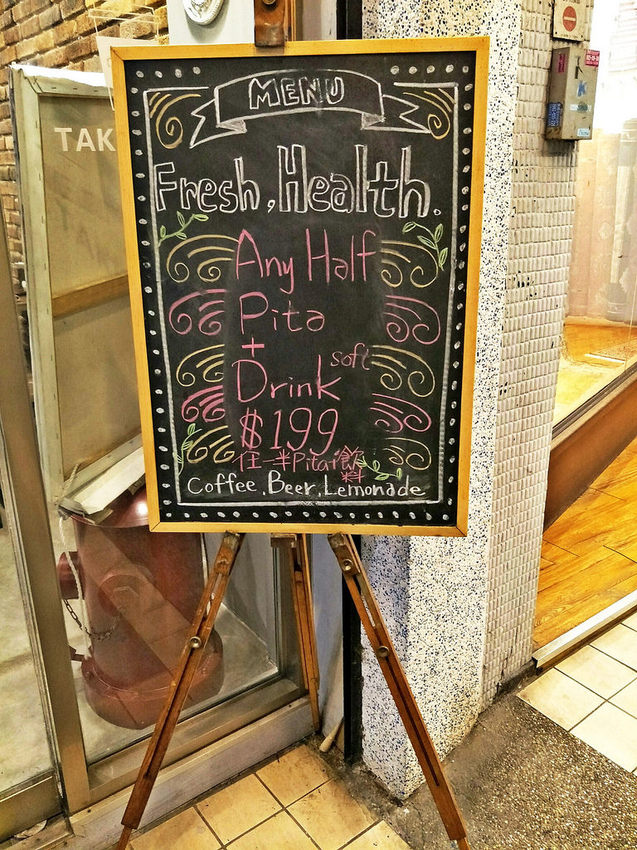 TAK
MENU
Fresh, Health.
Any Half
Pita
+
soft
Drink
$199
任一半Pita+飲料
Coffee, Beer, Lemonade